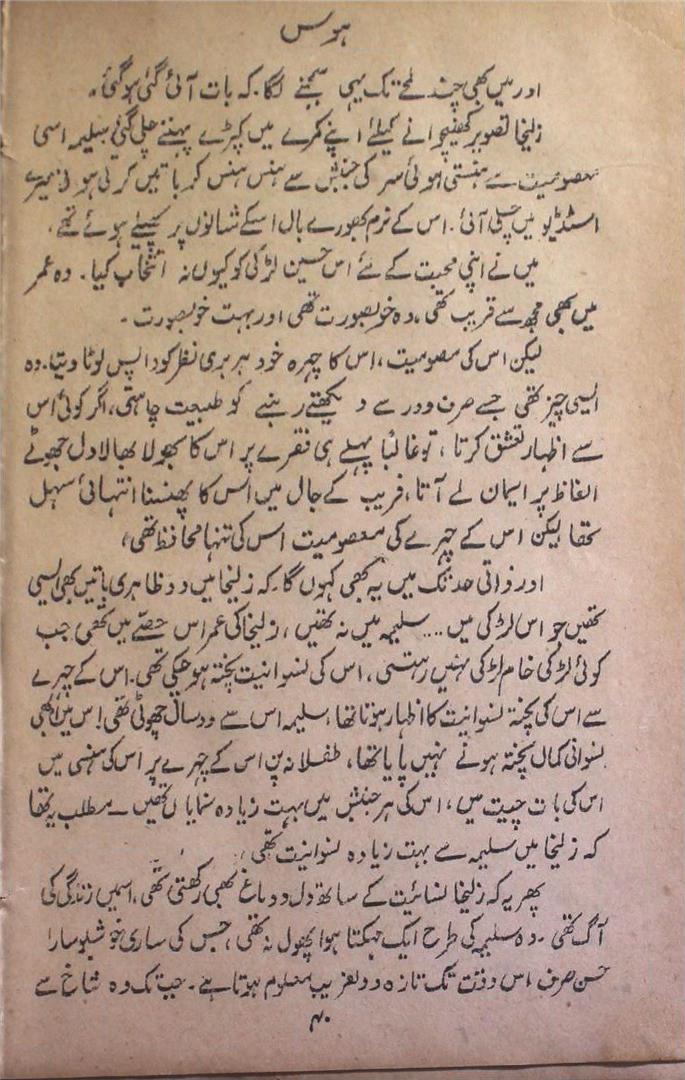 ہوس
اور میں بھی چند لمحے تک یہی سمجھنے لگا۔ کہ بات آئی گئی ہوگئی۔
زلیخا تصویر کھنچوانے کیلئے اپنے کمرے میں کپڑے پہننے چلی گئی سلیمہ اسی
معصومیت سے ہنستی ہوئی سر کی جنبش سے ہنس ہنس کر باتیں کرتی ہوئی میرے
اسٹڈیو میں چلی آئی۔ اس کے نرم بھورے بال اسکے شانوں پر پھیلے ہوئے تھے۔
میں نے اپنی محبت کے لئے اس حسین لڑکی کو کیوں نہ انتخاب کیا۔ وہ عمر
میں بھی مجھ سے قریب تھی، وہ خوبصورت تھی اور بہت خوبصورت۔
لیکن اس کی معصومیت، اس کا چہرہ خود ہر بری نظر کو واپس لوٹا دیتا۔ وہ
ایسی چیز تھی جسے صرف دور سے دیکھتے رہنے کو طبیعت چاہتی، اگر کوئی اس
سے اظہار تعشق کرتا، تو غالباً پہلے ہی فقرے پر اس کا بھولا بھالا دل جھوٹے
الفاظ پر ایمان لے آتا، فریب کے جال میں اس کا پھنسنا انتہائی سہل
تھا لیکن اس کے چہرے کی معصومیت اس کی تنہا محافظ تھی،
اور ذاتی حد تک میں یہ بھی کہوں گا۔ کہ زلیخا میں دو ظاہری باتیں بھی ایسی
تھیں جو اس لڑکی میں... سلیمہ میں نہ تھیں، زلیخا کی عمر اس حصّے میں تھی جب
کوئی لڑکی خام لڑکی نہیں رہتی، اس کی نسوانیت پختہ ہو چکی تھی۔ اس کے چہرے
سے اس کی پختہ نسوانیت کا اظہار ہوتا تھا، سلیمہ اس سے دو سال چھوٹی تھی! اس میں ابھی
نسوانی کمال پختہ ہونے نہیں پایا تھا، طفلانہ پن اس کے چہرے پر اس کی ہنسی میں
اس کی بات چیت میں، اس کی ہر جنبش میں بہت زیادہ نمایاں تھیں۔ مطلب یہ تھا
کہ زلیخا میں سلیمہ سے بہت زیادہ نسوانیت تھی،
پھر یہ کہ زلیخا نسائیت کے ساتھ دل و دماغ بھی رکھتی تھی، اسمیں زندگی کی
آگ تھی۔ وہ سلیمہ کی طرح ایک مہکتا ہوا پھول نہ تھی، جس کی ساری خوشبو سارا
حسن صرف اس وقت تک تازہ و دلفریب معلوم ہوتا ہے۔ جب تک وہ شاخ سے
۴۰